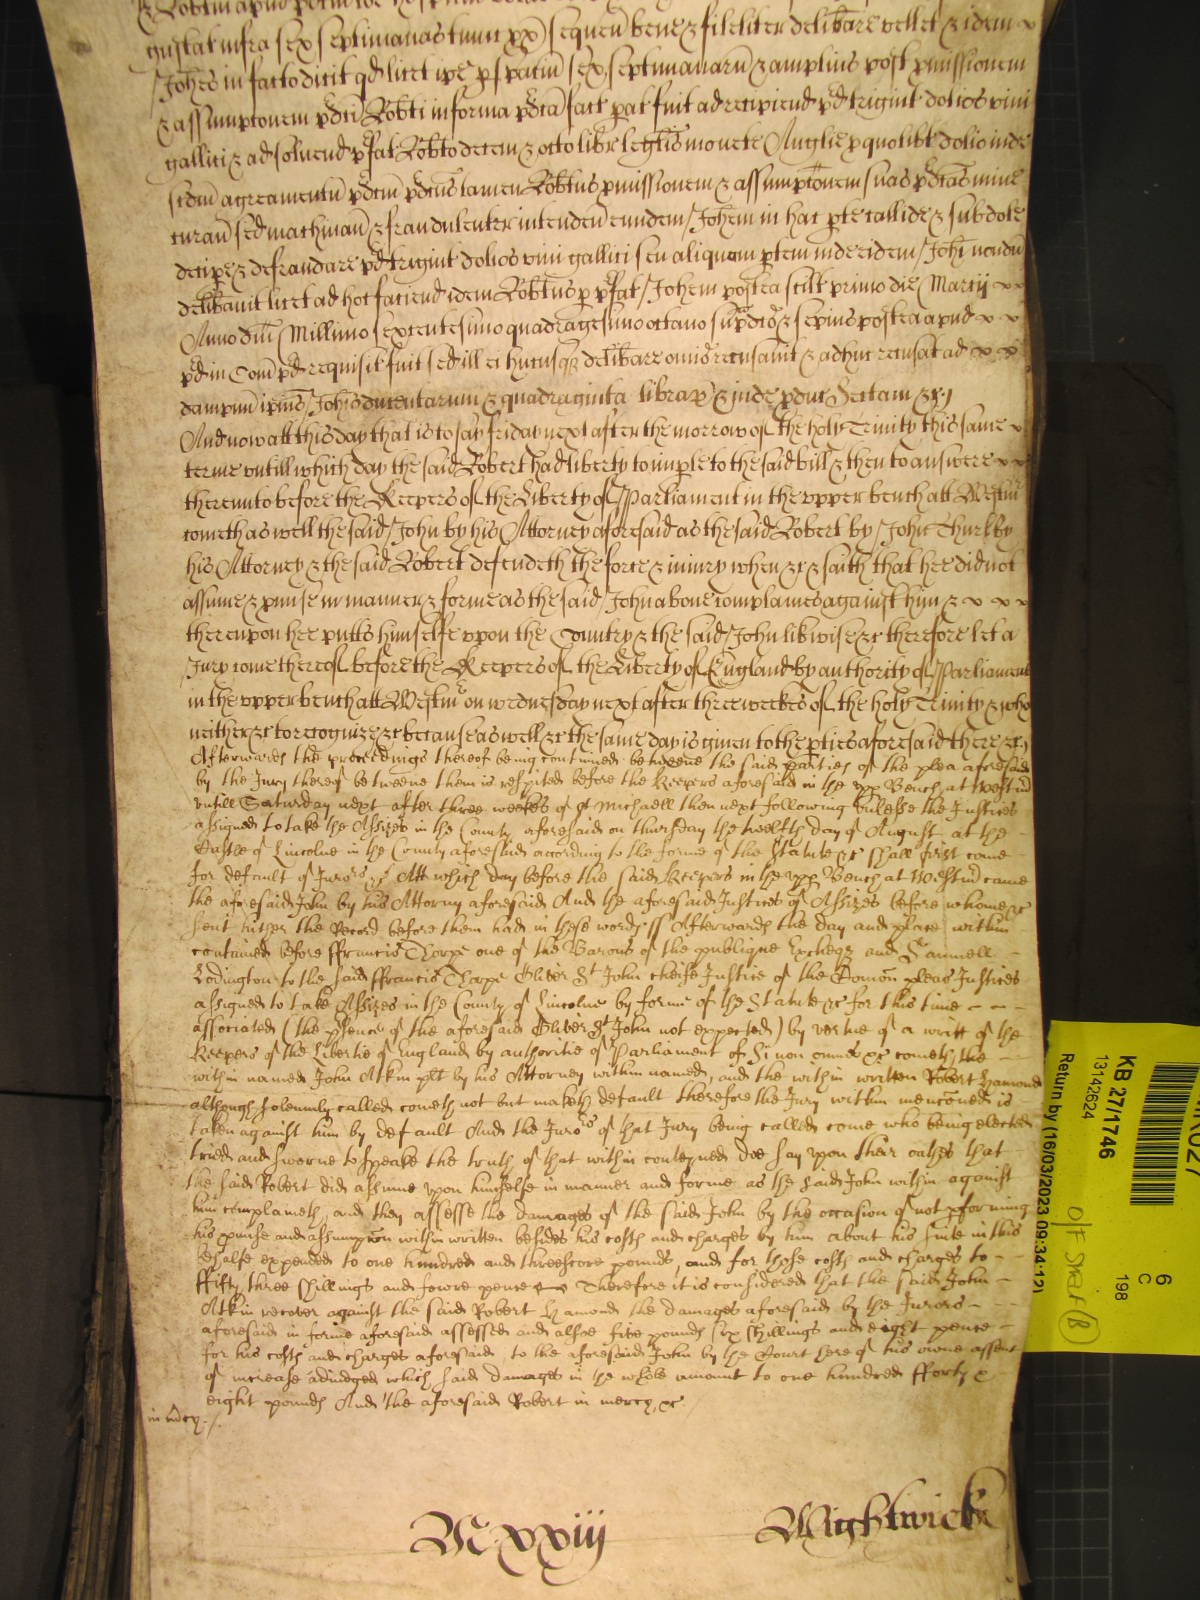 gustat infra sex septimanas tunc px sequen bene & fideliter delibare vellet & idem
Johes in facto dicit qd licet ipe p spatiu sex septimanaru & amplius post pmissionem
& assumptonem pdci Robti in forma pdca fact parat fuit ad recipiend pd trigint dolios vini
gallici & ad solvend pfat Robto decem & octo libr legtis monete Anglie p quolibt dolio inde
scdm agreamentu pdcm pdcus tamen Robtus pmissionem & assumptonem suas pdcas mine
curan sed machinan & fraudulenter intenden eundem Johem in hac pte callide & subdole
decipe & defraudare pd trigint dolios vini gallici seu aliquam ptem inde eidem Johi nondu
delibavit licet ad hoc faciend idem Robtus p pfat Johem postea scilt primo die Marcij
Anno dni Millimo sexcentesimo quadragesimo octavo supdco & sepius postea apud
pd in Com pd requisit fuit sed ill ei hucusq delibare omio recusavit & adhuc recusat ad
dampnu ipius Johis ducentarum & quadraginta librar & inde pduc sectam &c
And now att this day that is to say friday next after the morrow of the holy Trinity this same
terme untill which day the said Robert had liberty to imple to the said bill & then to answere
thereunto before the Keepers of the Liberty of Parliament in the upper bench att Westm
cometh as well the said John by his Attorney aforesaid as the said Robert by John Thurlby
his Attorney & the said Robert defendeth the force & iniury when &c & saith that hee did not
assume & pmise in manner & forme as the said John above complaines against him &
thereupon hee putts himselfe upon the Country & the said John likwise &c therefore let a
Jury come thereof before the Keepers of the Liberty of England by authority of Parliament
in the upper bench att Westmr on wednesday next after three weekes of the holy Trinity & who
neither &c to recognize &c because as well &c the same day is given to the pties aforesaid there &c
Afterwards the proceedings thereof being continued betweene the said parties of the plea aforesaid
by the Jury thereof betweene them is respited before the Keepers aforesaid in the upp Bench at Westm
untill Saturday next after three weekes of St Michaell then next following unlesse the Justices
assigned to take the Assizes in the County aforesaid on thursday the twelfth day of August at the
Castle of Lincolne in the County aforesaid according to the forme of the Statute &c shall first come
for default of Jurors &c Att which day before the said Keepers in the upp Bench at Westm came
the aforesaid John by his Attorny aforesaid And the aforesaid Justices of Assizes before whome &c
sent hither the Record before them had in these words ss Afterwards the day and place within
contained before ffrancis Thorpe one of the Barons of the publique Excheqr and Samuell
Lodington to the said ffrancis Thorpe Oliver St John cheife Justice of the Comon pleas Justices
assigned to take Assizes in the County of Lincolne by forme of the Statute &c for this time
associated (the psence of the aforesaid Oliver St John not expected) by vertue of a writt of the
Keepers of the Libertie of England by authoritie of Parliament of Si non omnes &c cometh the
within named John Atkin plt by his Attorney within named, and the within written Robert Hamond
although solemnly called cometh not but maketh default therefore the Jury within menconed is
taken against him by default And the Jurors of that Jury being called come who being elected
tried and sworne to speake the truth of that within conteyned doe say upon their oathes that
the said Robert did assume upon himselfe in manner and forme as the said John within against
him complaineth, and then assesse the damages of the said John by the occasion of not pforming
his pmise and assumpcon within written besides his costs and charges by him about his suite in this
behalfe expended to one hundred and threescore pounds, and for those costs and charges to
ffifty three shillings and fowre pence Therefore it is considered that the said John
Atkin recover against the said Robert Hamond the damages aforesaid by the Jurors
aforesaid in forme aforesaid assessed and alsoe five pounds six shillings and eight pence
for his costs and charges aforesaid, to the aforesaid John by the Court here of his owne assent
of increase adiudged which said damages in the whole amount to one hundred fforty &
eight pounds And the aforesaid Robert in mercy, &c
in mcy
M xxiij
Wightwick
KB 27/1746
13142624
Return by (16/03/2023 09:34:12)
6
C
198